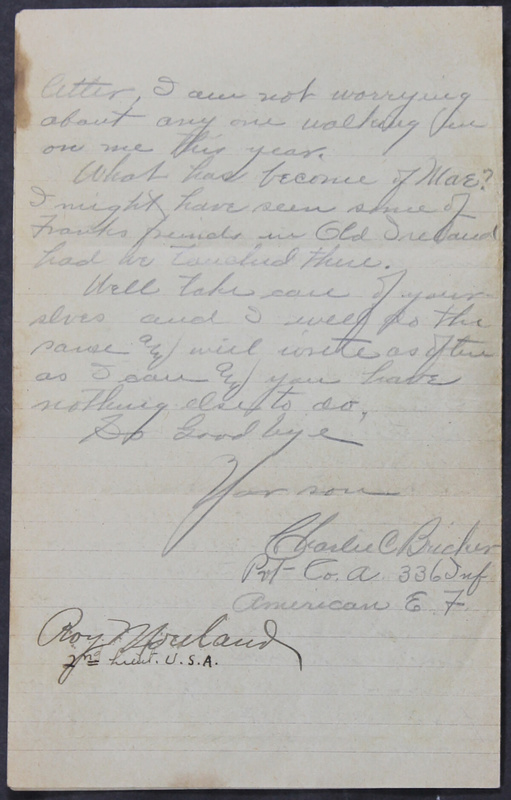 letter, I am not worrying
about any one walking in
on me this year.
What has become of Mae?
I might have seen some of
Franks friends in Old Ireland
had we touched there.
Well take care of your-
slves and I will do the
same and will write as often
as I can and you have
nothing else to do,
So Good bye
Your son
Charlie C Bricker
Pvt Co. A 336 Inf
American E. F.
Roy Moreland
2nd Lieut. U.S.A.